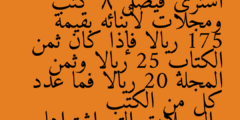 اشترى فيصل ٨ كتب
ومجلات لأبنائه بقيمة
175 ريالا فإذا كان ثمن
الكتاب 25 ريالا وثمن
المجلة 20 ريالا فما عدد
كل من الكتب